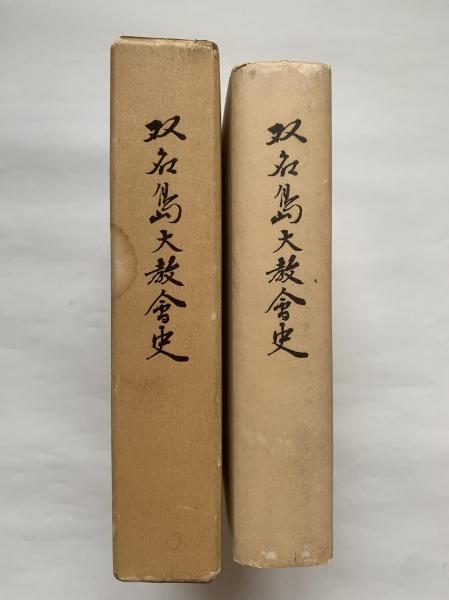 双名島大教會史
双名島大教會史